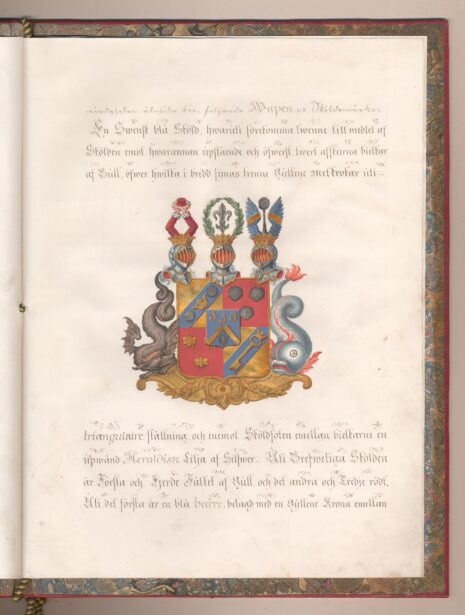 följande Wapen och Sköldemärke.
En Swensk blå Sköld, hwaruti förekomma twenne till medlet af
Skölden emot hwarannan upstående och öfwerst twert afskurna bielkar
af Gull, öfwer hwilka i bredd synas trenne Gyllene Mellrötar uti
triangulaire ställning, och inemot Sköldfoten emellan bielkarne en
upwänd Heraldisk Lilja af Silfwer. Uti
är Första och Fjerde Fältet af Gull, och det andra och Tredje rödt.
Uti det första är en blå barre, belagd med en Gyllene Krona emellan